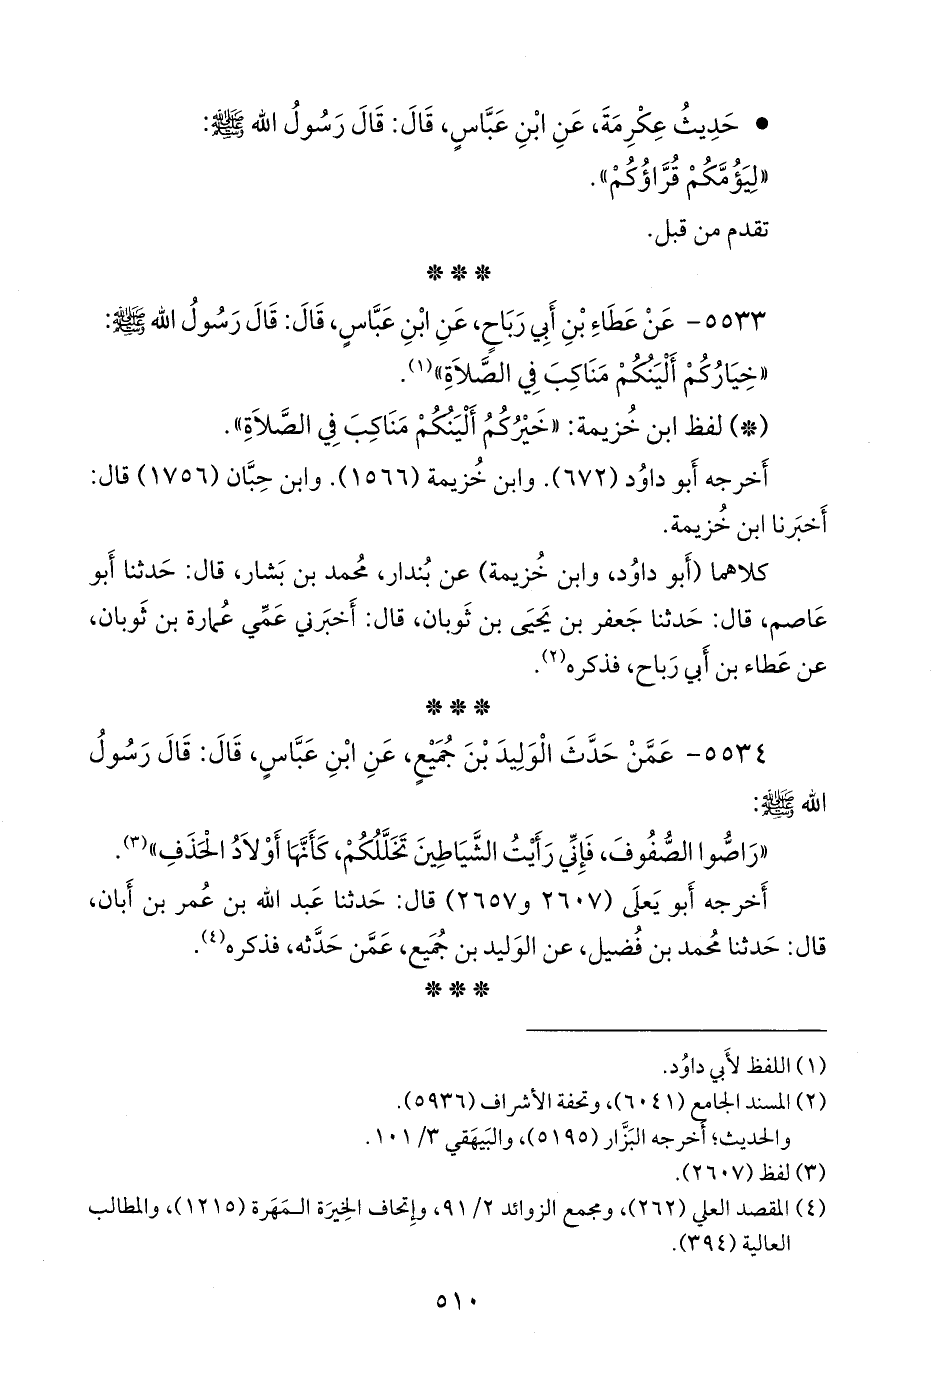 • حَدِيثُ عِكْرِمَةَ، عَنِ ابْنِ عَبَّاسٍ، قَالَ: قَالَ رَسُولُ الله ﷺ:
«لِيَؤُمَّكُمْ قُرَّاؤُكُمْ».
تقدم من قبل.
* * *
٥٥٣٣- عَنْ عَطَاءِ بْنِ أَبِي رَبَاحٍ، عَنِ ابْنِ عَبَّاسٍ، قَالَ: قَالَ رَسُولُ الله ﷺ:
«خِيَارُكُمْ أَلْيَنُكُمْ مَنَاكِبَ فِي الصَّلاَةِ»(١).
(*) لفظ ابن خُزيمة: «خَيْرُكُمُ أَلْيَنُكُمْ مَنَاكِبَ فِي الصَّلاَةِ».
أَخرجه أَبو داوُد (٦٧٢). وابن خُزيمة (١٥٦٦). وابن حِبَّان (١٧٥٦) قال:
أَخبَرنا ابن خُزيمة.
كلاهما (أَبو داوُد، وابن خُزيمة) عن بُندار، مُحمد بن بَشار، قال: حَدثنا أَبو
عَاصم، قال: حَدثنا جَعفر بن يَحيَى بن ثَوبان، قال: أَخبَرني عَمِّي عُمارة بن ثَوبان،
عن عَطاء بن أَبي رَباح، فذكره(٢).
* * *
٥٥٣٤- عَمَّنْ حَدَّثَ الْوَلِيدَ بْنَ جُمَيْعٍ، عَنِ ابْنِ عَبَّاسٍ، قَالَ: قَالَ رَسُولُ
الله ﷺ:
«رَاصُّوا الصُّفُوفَ، فَإِنِّي رَأَيْتُ الشَّيَاطِينَ تَخَلَّلُكُمْ، كَأَنَّهَا أَوْلاَدُ الْحَذَفِ»(٣).
أَخرجه أَبو يَعلَى (٢٦٠٧ و٢٦٥٧) قال: حَدثنا عَبد الله بن عُمر بن أَبان،
قال: حَدثنا مُحمد بن فُضيل، عن الوَليد بن جُميع، عَمَّن حَدَّثه، فذكره(٤).
* * *
(١) اللفظ لأَبي داوُد.
(٢) المسند الجامع (٦٠٤١)، وتحفة الأشراف (٥٩٣٦).
والحديث؛ أَخرجه البَزَّار (٥١٩٥)، والبَيهَقي ٣/ ١٠١.
(٣) لفظ (٢٦٠٧).
(٤) المقصد العلي (٢٦٢)، ومجمع الزوائد ٢/ ٩١، وإِتحاف الخِيرَة الـمَهَرة (١٢١٥)، والمطالب
العالية (٣٩٤).
٥١٠